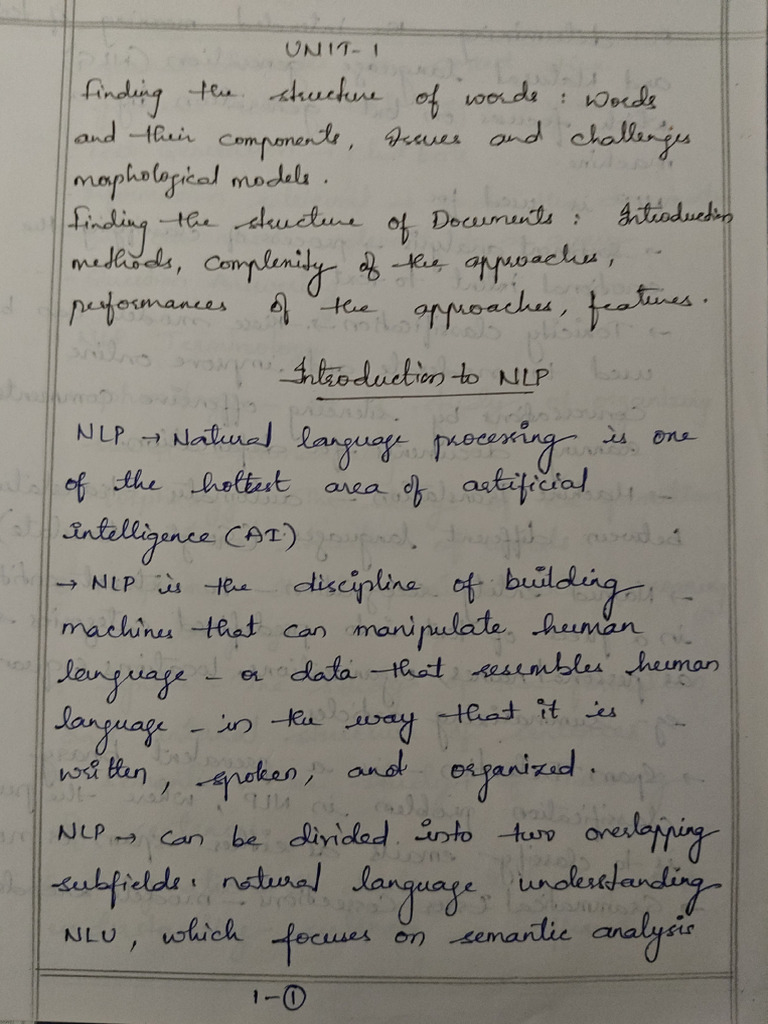 UNIT-1
Finding the structure of words : Words
and their components, Issues and challenges
morphological models.
Finding the structure of Documents : Introduction
methods, complexity of the approaches,
performances of the approaches, features.
Introduction to NLP
NLP → Natural language processing is one
of the hottest area of artificial
intelligence (AI)
→ NLP is the discipline of building
machines that can manipulate human
language - or data that resembles human
language - in the way that it is
written, spoken, and organized.
NLP → can be divided into two overlapping
subfields: natural language understanding
NLU, which focuses on semantic analysis
1-①